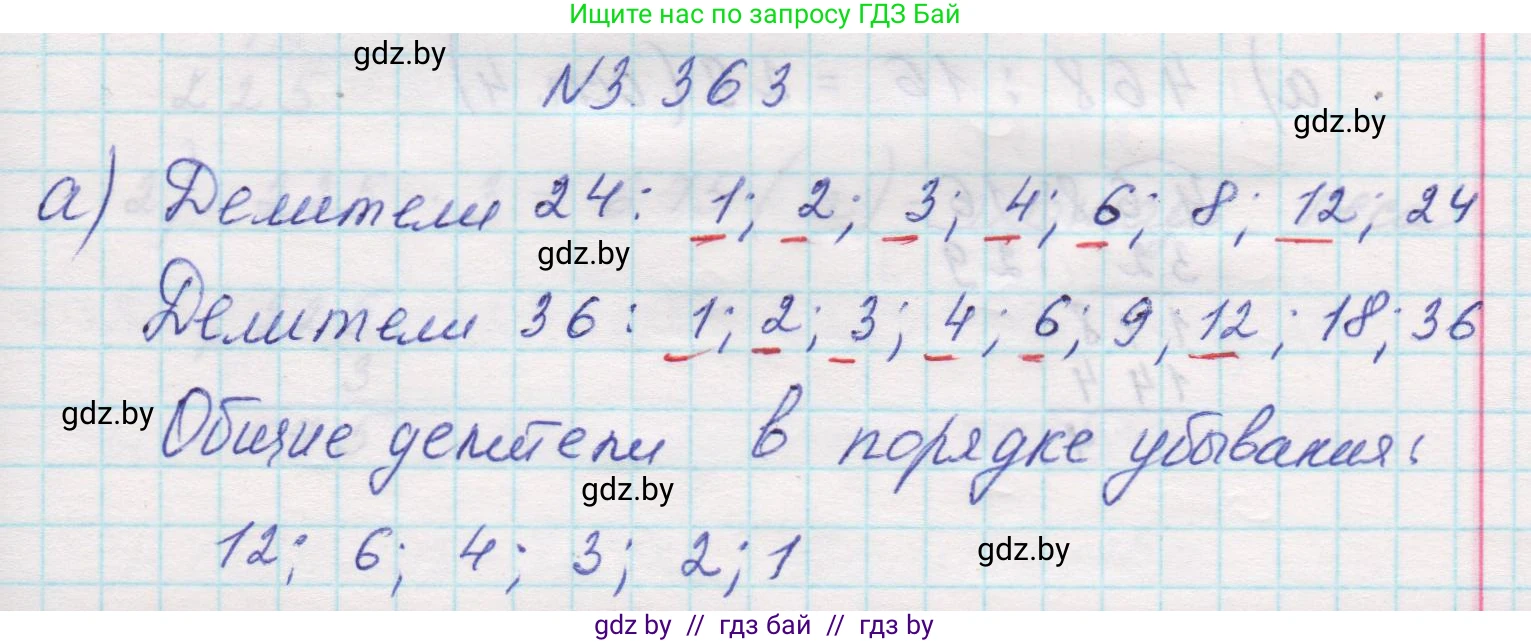 Ищите нас по запросу ГДЗ Бай
gdz.by
N3.363
gdz.by
а) Делители 24: 1; 2; 3; 4; 6; 8; 12; 24
gdz.by
Делители 36: 1; 2; 3; 4; 6; 9; 12; 18; 36
gdz.by
Общие делители в порядке убывания:
gdz.by
12; 6; 4; 3; 2; 1
gdz.by
gdz by // гдз бай // гдз by